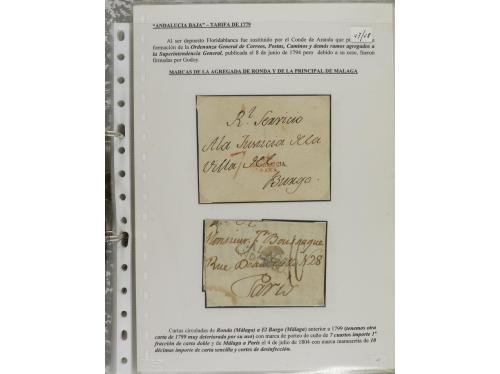 "ANDALUCIA BAJA" – TARIFA DE 1779
Al ser depuesto Floridablanca fue sustituido por el Conde de Aranda que
formación de la Ordenanza General de Correos, Postas, Caminos y demás ramos agregados a
la Superintendencia General, publicada el 8 de junio de 1794 pero debido a su cese, fueron
firmadas por Godoy.
MARCAS DE LA AGREGADA DE RONDA Y DE LA PRINCIPAL DE MALAGA
Rl. Servicio
Ala Justicia de la
Villa del
Burgo.
Monsieur
Rue N28
Paris
Cartas circuladas de Ronda (Málaga) a El Burgo (Málaga) anterior a 1799 (tenemos otra
carta de 1799 muy deteriorada por su uso) con marca de porteo de cuño de 7 cuartos importe 1ª
fracción de carta doble y de Málaga a París el 4 de julio de 1804 con marca manuscrita de 10
décimas importe de carta sencilla y cortes de desinfección.